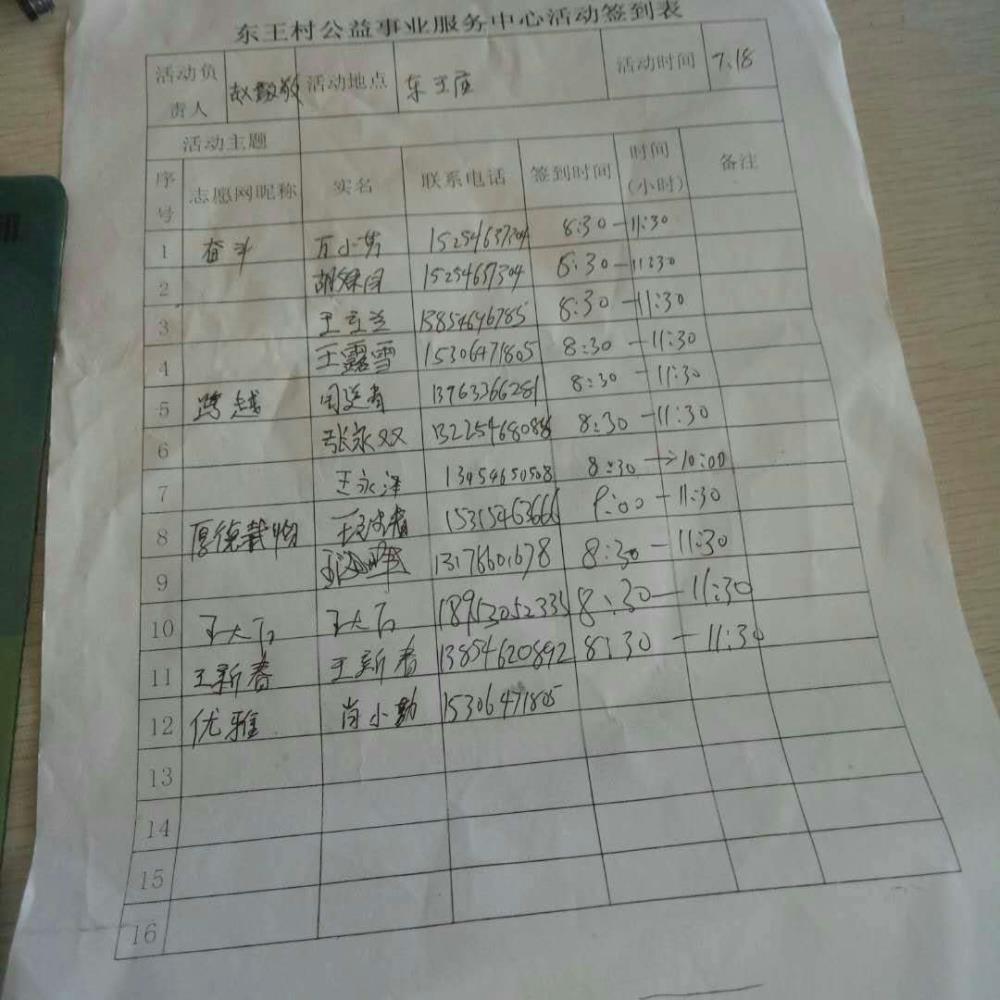 东王村公益事业服务中心活动签到表
活动负责人 活动地点 东王 活动时间 7.18
活动主题
序号 志愿网昵称 实名 联系电话 签到时间 时间(小时) 备注
1 奋斗 万小男 15254637304 8:30-11:30
2 15254637304 8:30-11:30
3 13854696785 8:30-11:30
4 王露雪 15306471805 8:30-11:30
5 跨越 13963366281 8:30-11:30
6 张永双 8:30-11:30
7 王永泽 13454650508 8:30→10:00
8 厚德载物 15315463666 9:00-11:30
9 13176601678 8:30-11:30
10 王大石 王大石 18953052335 8:30-11:30
11 王新春 王新春 13854620892 8:30-11:30
12 优雅 肖小勤 15306471805
13
14
15
16